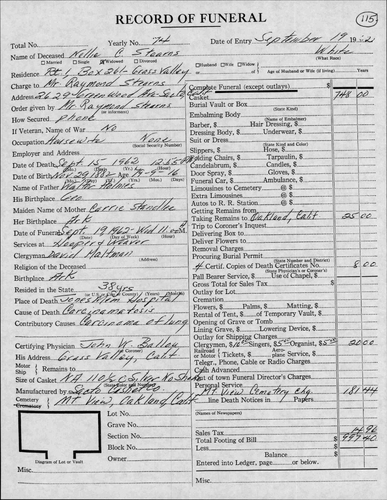 115
RECORD OF FUNERAL
Total No. Yearly No. 74 Date of Entry September 19 1962
Name of Deceased Nellie C Stearns White
(What Race)
Married Single Widowed Divorced
Husband Wife Widow Age of Husband or Wife (if living) Years
Residence Rt 1 Box 261- Grass Valley
Charge to Mr Raymond Stearns
Address 2629
Order given by Mr Raymond Stearns
How Secured phone
If Veteran, Name of War No
Occupation Housewife None
(Social Security Number)
Employer and Address
Date of Death Sept 15 1962
Date of Birth Nov 29 1881 Age
Name of Father Walter Holmes
His Birthplace Geo
Maiden Name of Mother Carrie Standlee
Her Birthplace Ark
Date of Funeral Sept 19 1962 Wed 11:00
Services at Hooper & Weaver
(Address)
Clergyman David Maltman
Religion of the Deceased
Birthplace Ark
Resided in the State 38 yrs
Place of Death Jones Mem Hospital
Cause of Death Carcinomatosis
Contributory Causes Carcinoma of lung
Certifying Physician John W. Bailey
His Address Grass Valley, Calif
Motor
Ship Remains to
Size of Casket
Manufactured by
Cemetery
Crematory Mt View, Oakland, Calif
Lot No.
Grave No.
Section No.
Block No.
Owner
Diagram of Lot or Vault
Misc.
Complete Funeral (except outlays) $
Casket 748.00
Burial Vault or Box
(State Kind)
Embalming Body
(Name of Embalmer)
Barber, $ Hair Dressing, $
Dressing Body, $ Underwear, $
Suit or Dress
(State Kind and Color)
Slippers, $ Hose, $
Folding Chairs, $ Tarpaulin, $
Candelabrum, $ Candles, $
Door Spray, $ Gloves, $
Funeral Car, $ Ambulance, $
Limousines to Cemetery @ $
Extra Limousines @ $
Autos to R. R. Station @ $
Getting Remains from
Taking Remains to Oakland, Calif 25.00
Trip to Coroner's Inquest
Delivering Box to
Deliver Flowers to
Removal Charges
Procuring Burial Permit
(State Number and Doctor)
4 Certif. Copies of Death Certificates No. 8.00
(State Physician's or Coroner's)
Pall Bearer Service, $ Use of Chapel, $
Gross Total for Sales Tax $
Outlay for Lot
Cremation
Flowers, $ Palms, $ Matting, $
Rental of Tent, $ of Temporary Vault, $
Opening of Grave or Tomb
Lining Grave, $ Lowering Device, $
Outlay for Shipping Charges
Clergyman, $ Singers, $ Organist, $ 20.00
Railroad
or Motor Tickets, $ Aeroplane Service, $
Telegr., Phone, Cable or Radio Charges
Cash Advanced
Out of town Funeral Director's Charges
Personal Service
Mt View Cemetery Chg. 181.44
line Death Notices in Papers
Sales Tax 14.96
Total Footing of Bill $ 997.40
Less
Balance $
Entered into Ledger, page or below.
Misc.